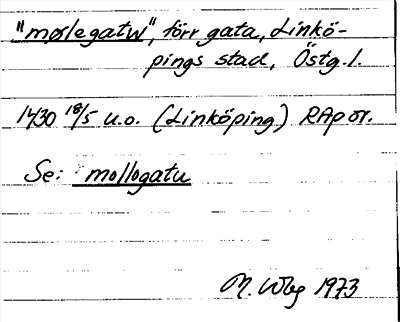 "mølegatw", förr gata, Linkö-
pings stad, Östg. l.
1430 18/5 u.o. (Linköping) RAp or.
Se: mollogatu
N. Wbg 1973